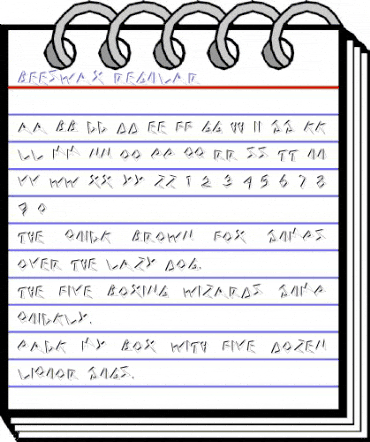 BEESWAX REGULAR
AA BB CC DD EE FF GG HH II JJ KK
LL MM NN OO PP QQ RR SS TT UU
VV WW XX YY ZZ 1 2 3 4 5 6 7 8
9 0
THE QUICK BROWN FOX JUMPS
OVER THE LAZY DOG.
THE FIVE BOXING WIZARDS JUMP
QUICKLY.
PACK MY BOX WITH FIVE DOZEN
LIQUOR JUGS.